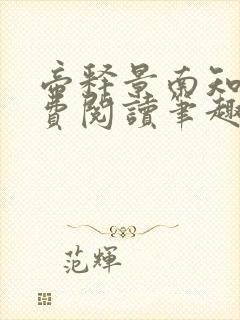 帝釋景南知
費閱讀筆趣
范輝